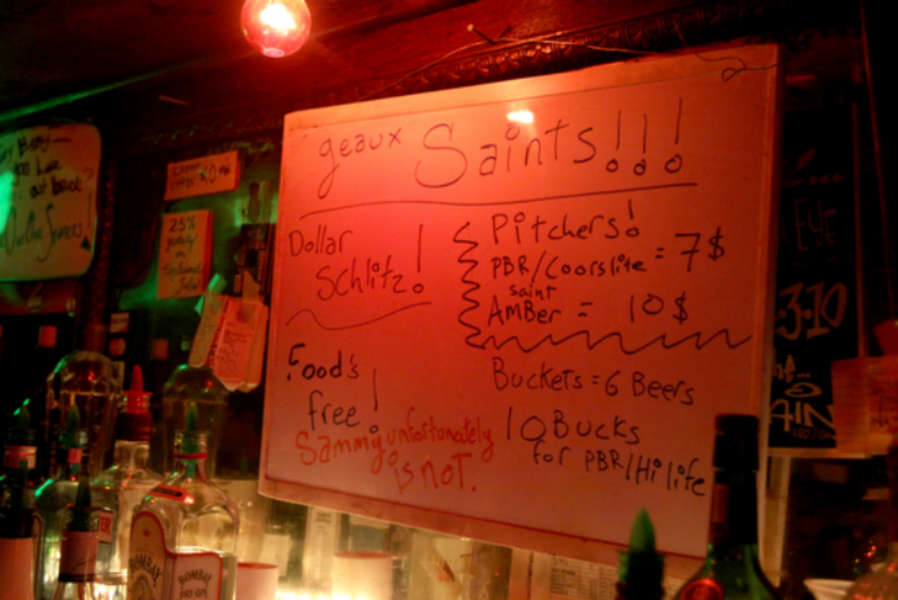 geaux Saints!!!
Dollar
Schlitz!
Pitchers!
PBR/Coorslite = 7$
saint
AMBer = 10$
Food's
free!
Sammy unfortunately
is not.
Buckets = 6 Beers
10 Bucks
for PBR/Hilife
25%
BOMBAY
BOMBAY
DRY GIN
3·10